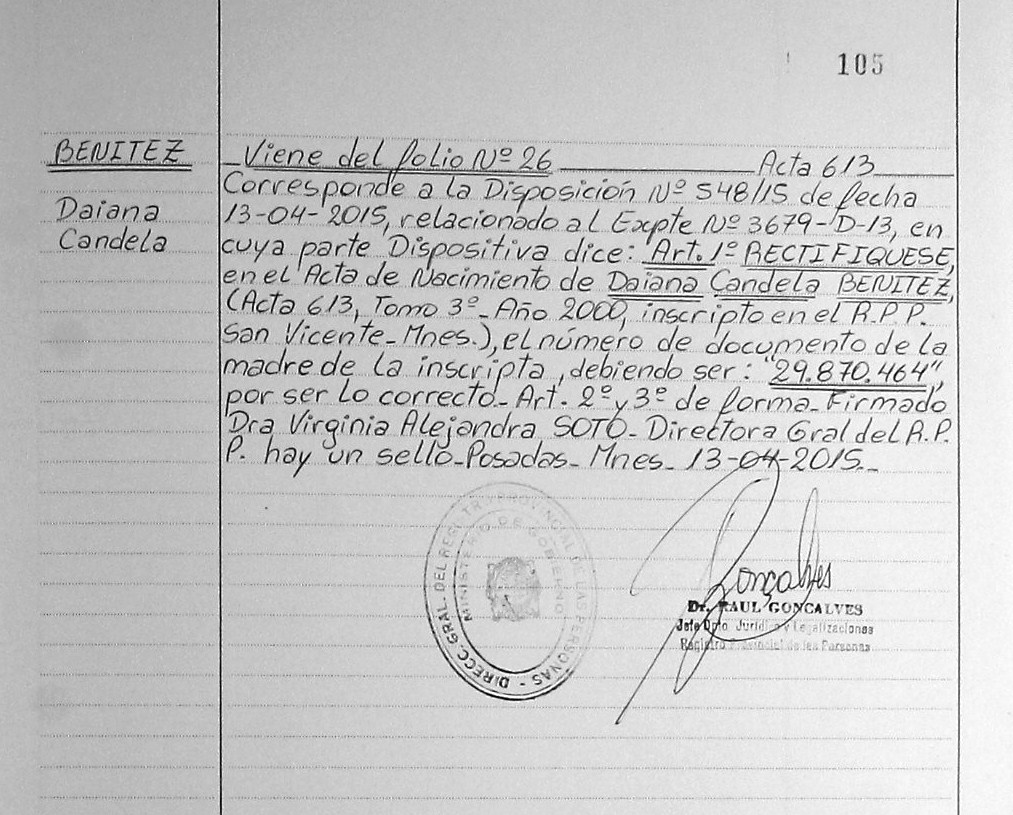 105
BENITEZ
Daiana
Candela
Viene del folio Nº 26 Acta 613
Corresponde a la Disposición Nº 548/15 de fecha
13-04-2015, relacionado al Expte Nº 3679-D-13, en
cuya parte Dispositiva dice: Art. 1º RECTIFIQUESE,
en el Acta de Nacimiento de Daiana Candela BENITEZ,
(Acta 613, Tomo 3º- Año 2000, inscripto en el R.P.P.
San Vicente-Mnes.), el número de documento de la
madre de la inscripta, debiendo ser: "29.870.464",
por ser lo correcto- Art. 2º y 3º de forma- Firmado
Dra Virginia Alejandra SOTO- Directora Gral del R.P.
P. hay un sello-Posadas- Mnes- 13-04-2015.-
DIRECC. GRAL. DEL REGISTRO PROVINCIAL DE LAS PERSONAS -
MINISTERIO DE GOBIERNO
Gonçalves
Dr. RAUL GONCALVES
Jefe Dpto. Jurídico y Legalizaciones
Registro Provincial de las Personas